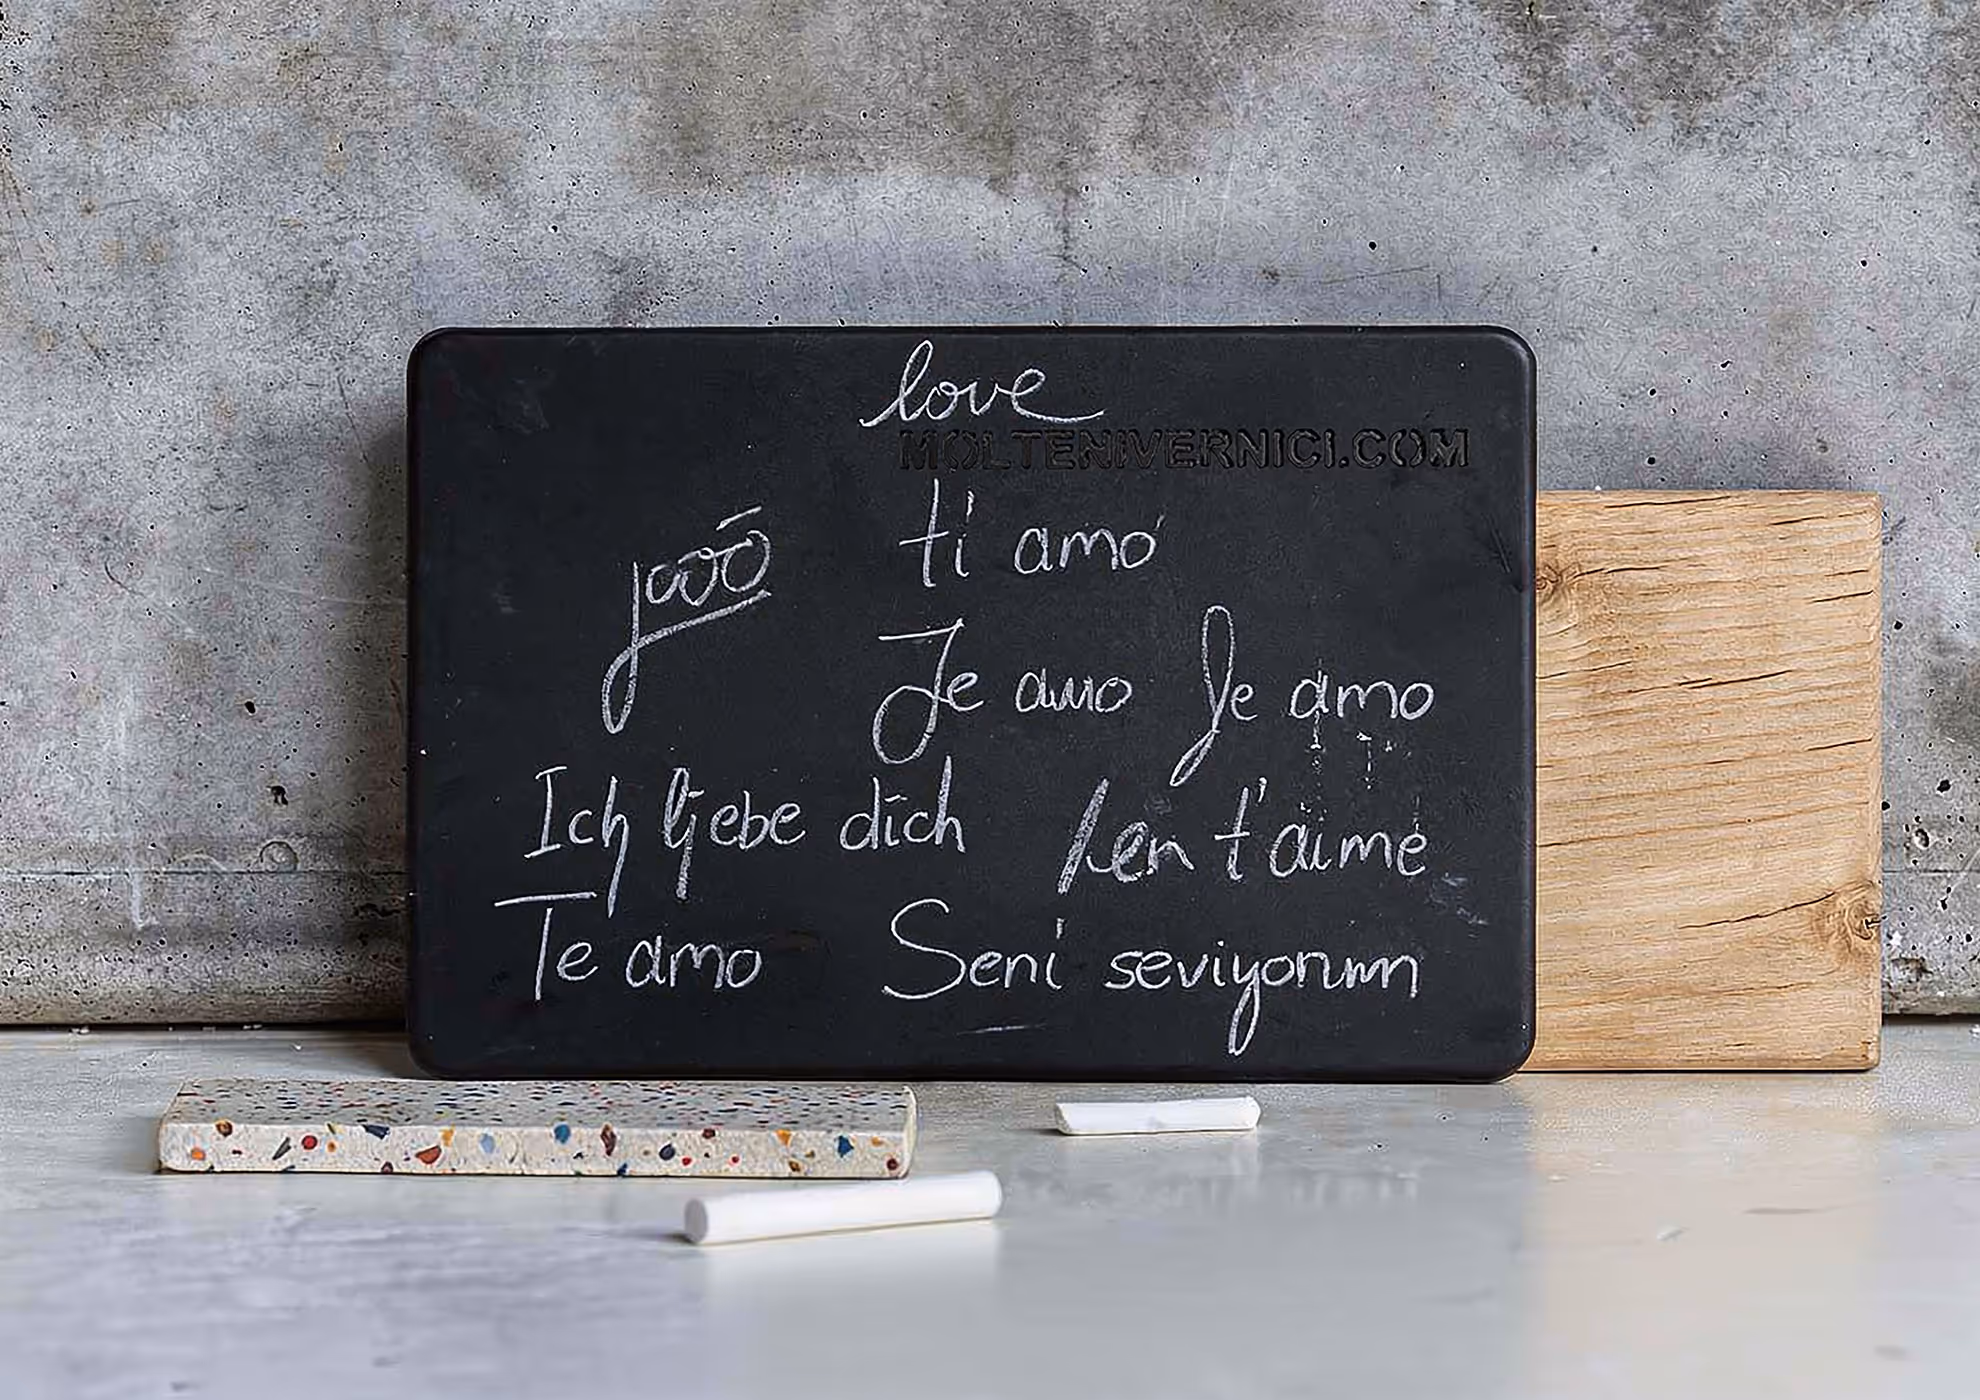 love
MOLTENIVERNICI.COM
ti amo
Je amo Je amo
Ich liebe dich
t'aime
Te amo Seni seviyorum